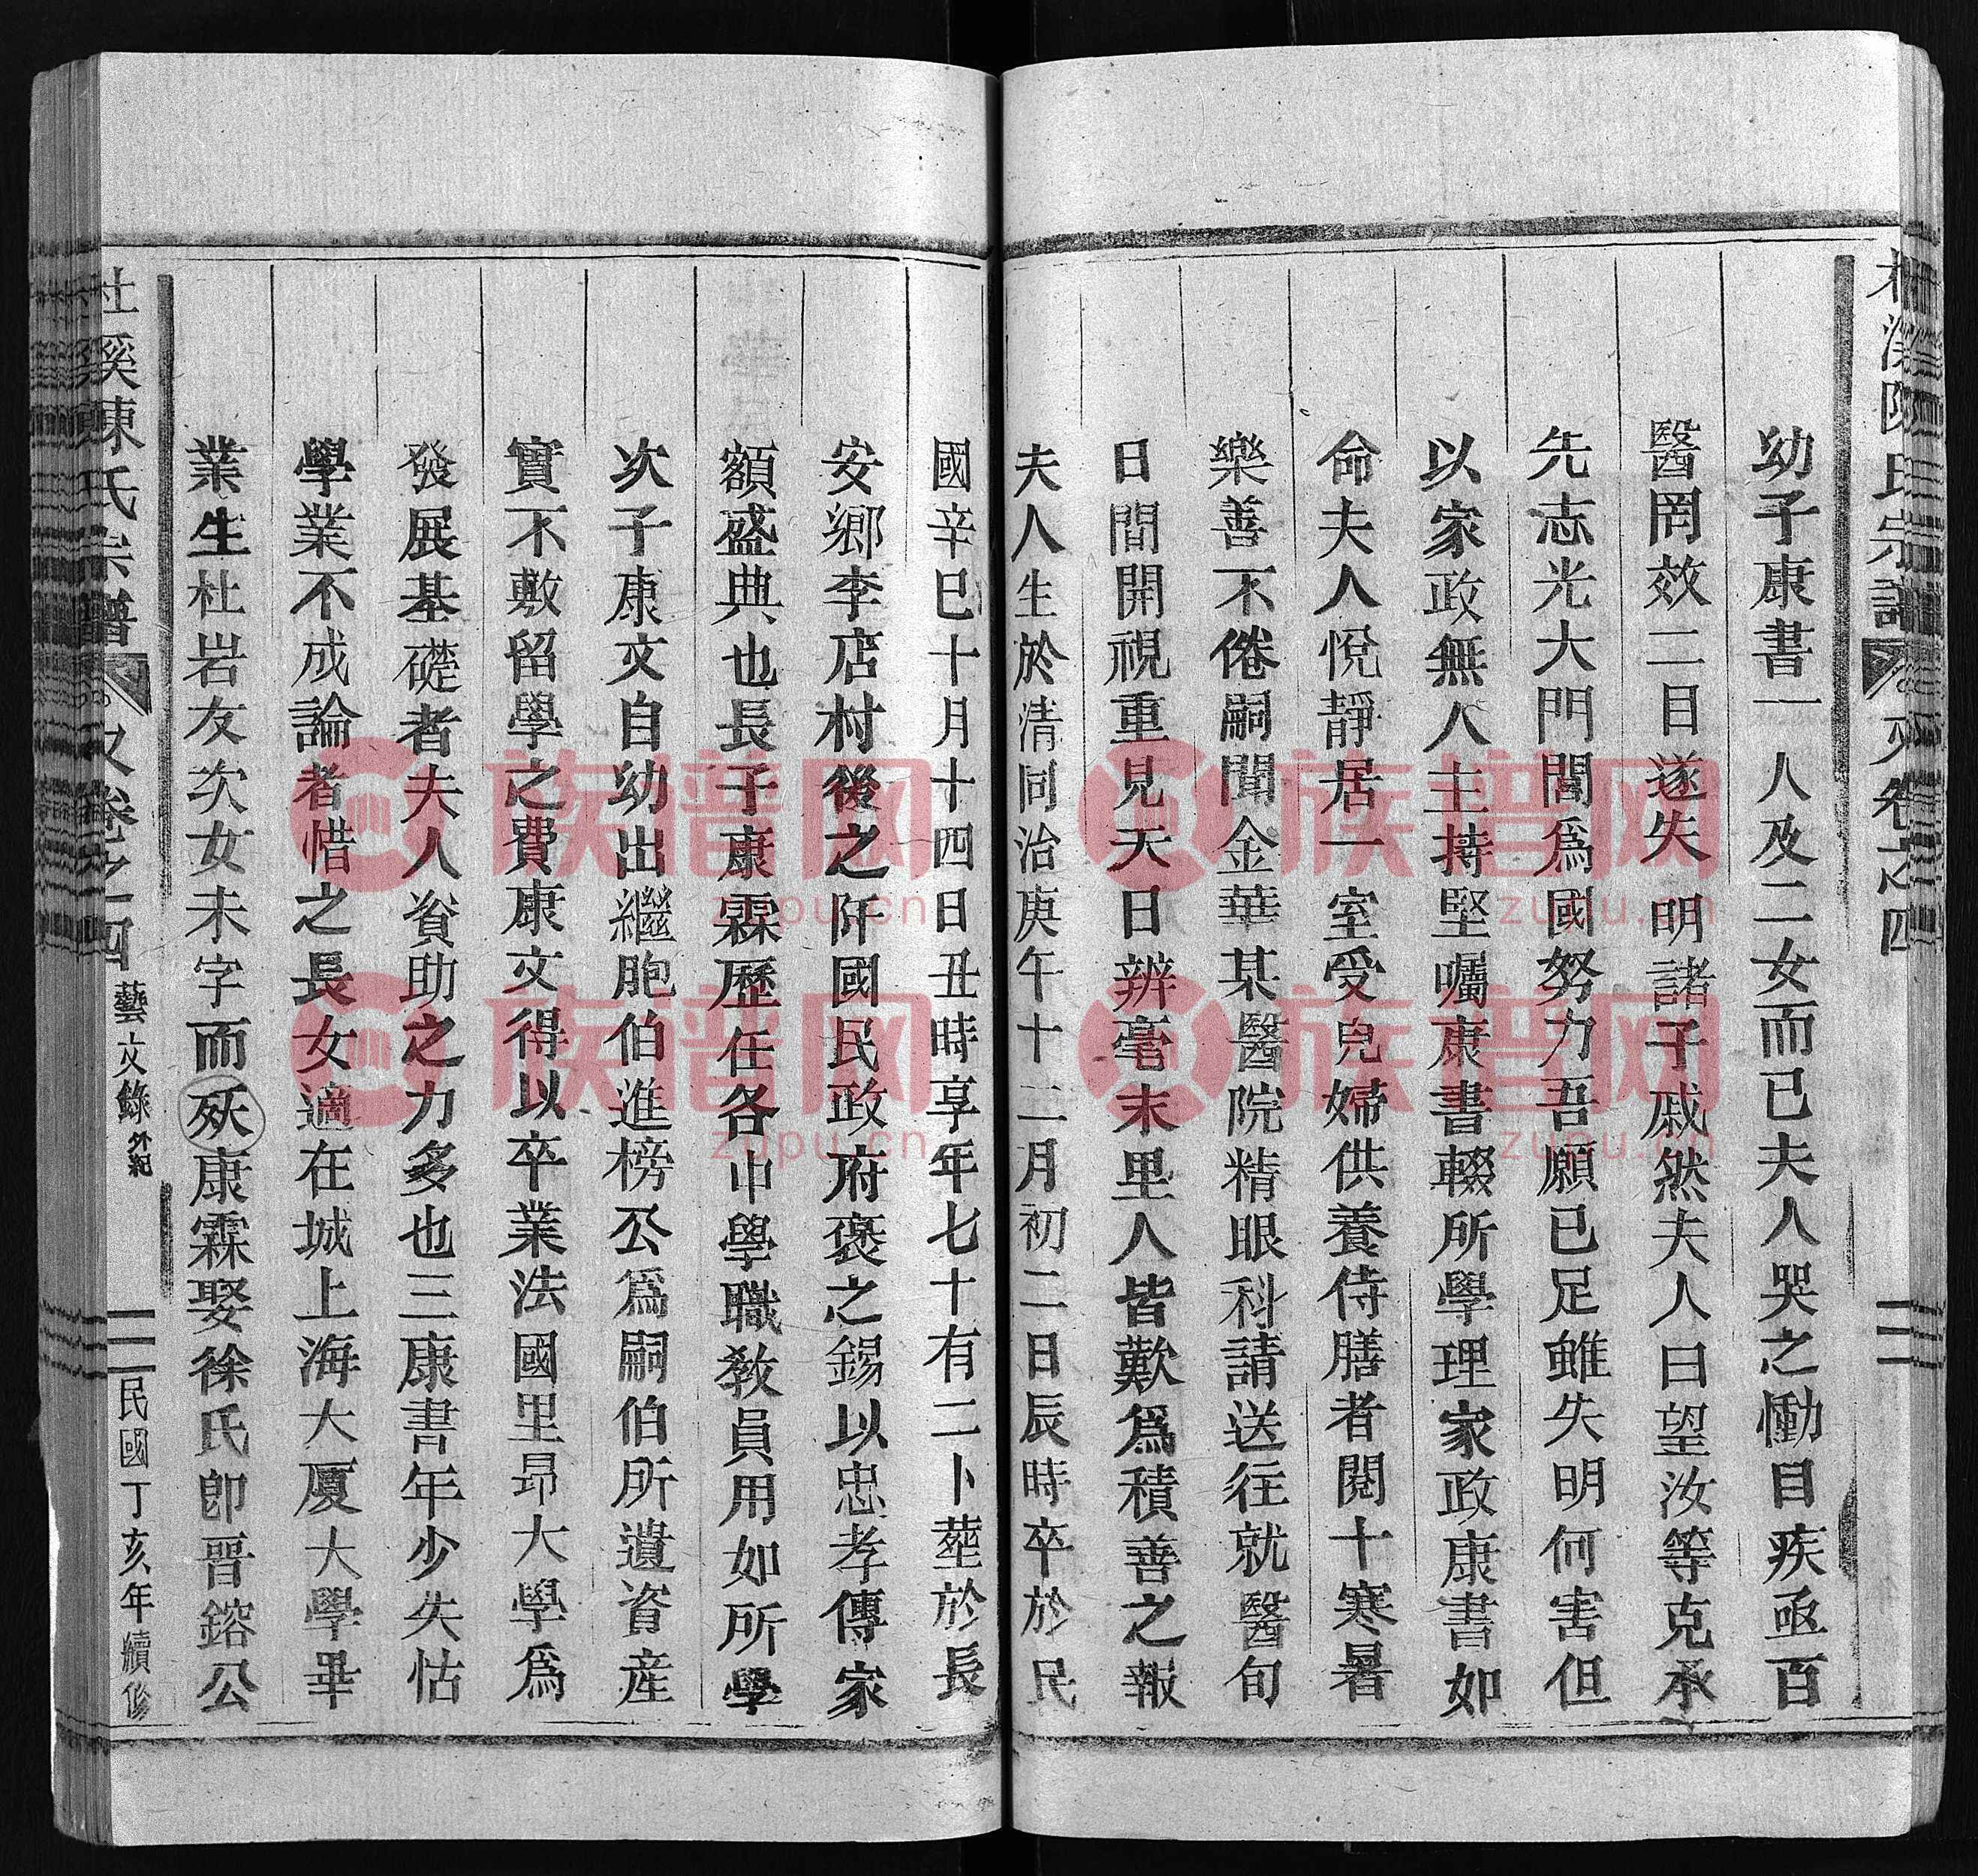 幼子康書一人及二女而已夫人哭之慟目疾亟百
醫罔效二目遂失明諸子戚然夫人曰望汝等克承
先志光大門閭爲國努力吾願已足雖失明何害但
以家政無人主持堅囑康書輟所學理家政康書如
命夫人悅靜居一室受兒婦供養侍膳者閱十寒暑
樂善不倦嗣聞金華某醫院精眼科請送往就醫旬
日間開視重見天日辨毫末里人皆歎爲積善之報
夫人生於清同治庚午十二月初二日辰時卒於民
國辛巳十月十四日丑時享年七十有二卜塟於長
安鄉李店村後之阡國民政府褒之錫以忠孝傳家
額盛典也長子康霖歷任各中學職教員用如所學
次子康文自幼出繼胞伯進榜公爲嗣伯所遺資産
實不敷留學之費康文得以卒業法國里昂大學爲
發展基礎者夫人資助之力多也三康書年少失怙
學業不成論者惜之長女適在城上海大厦大學畢
業生杜岩友次女未字而殀康霖娶徐氏卽晋鎔公
杜溪陳氏宗譜
卷之四
藝文錄 外紀
民國丁亥年續修
族谱网
zupu.cn
族谱网
zupu.cn
族谱网
zupu.cn
族谱网
zupu.cn